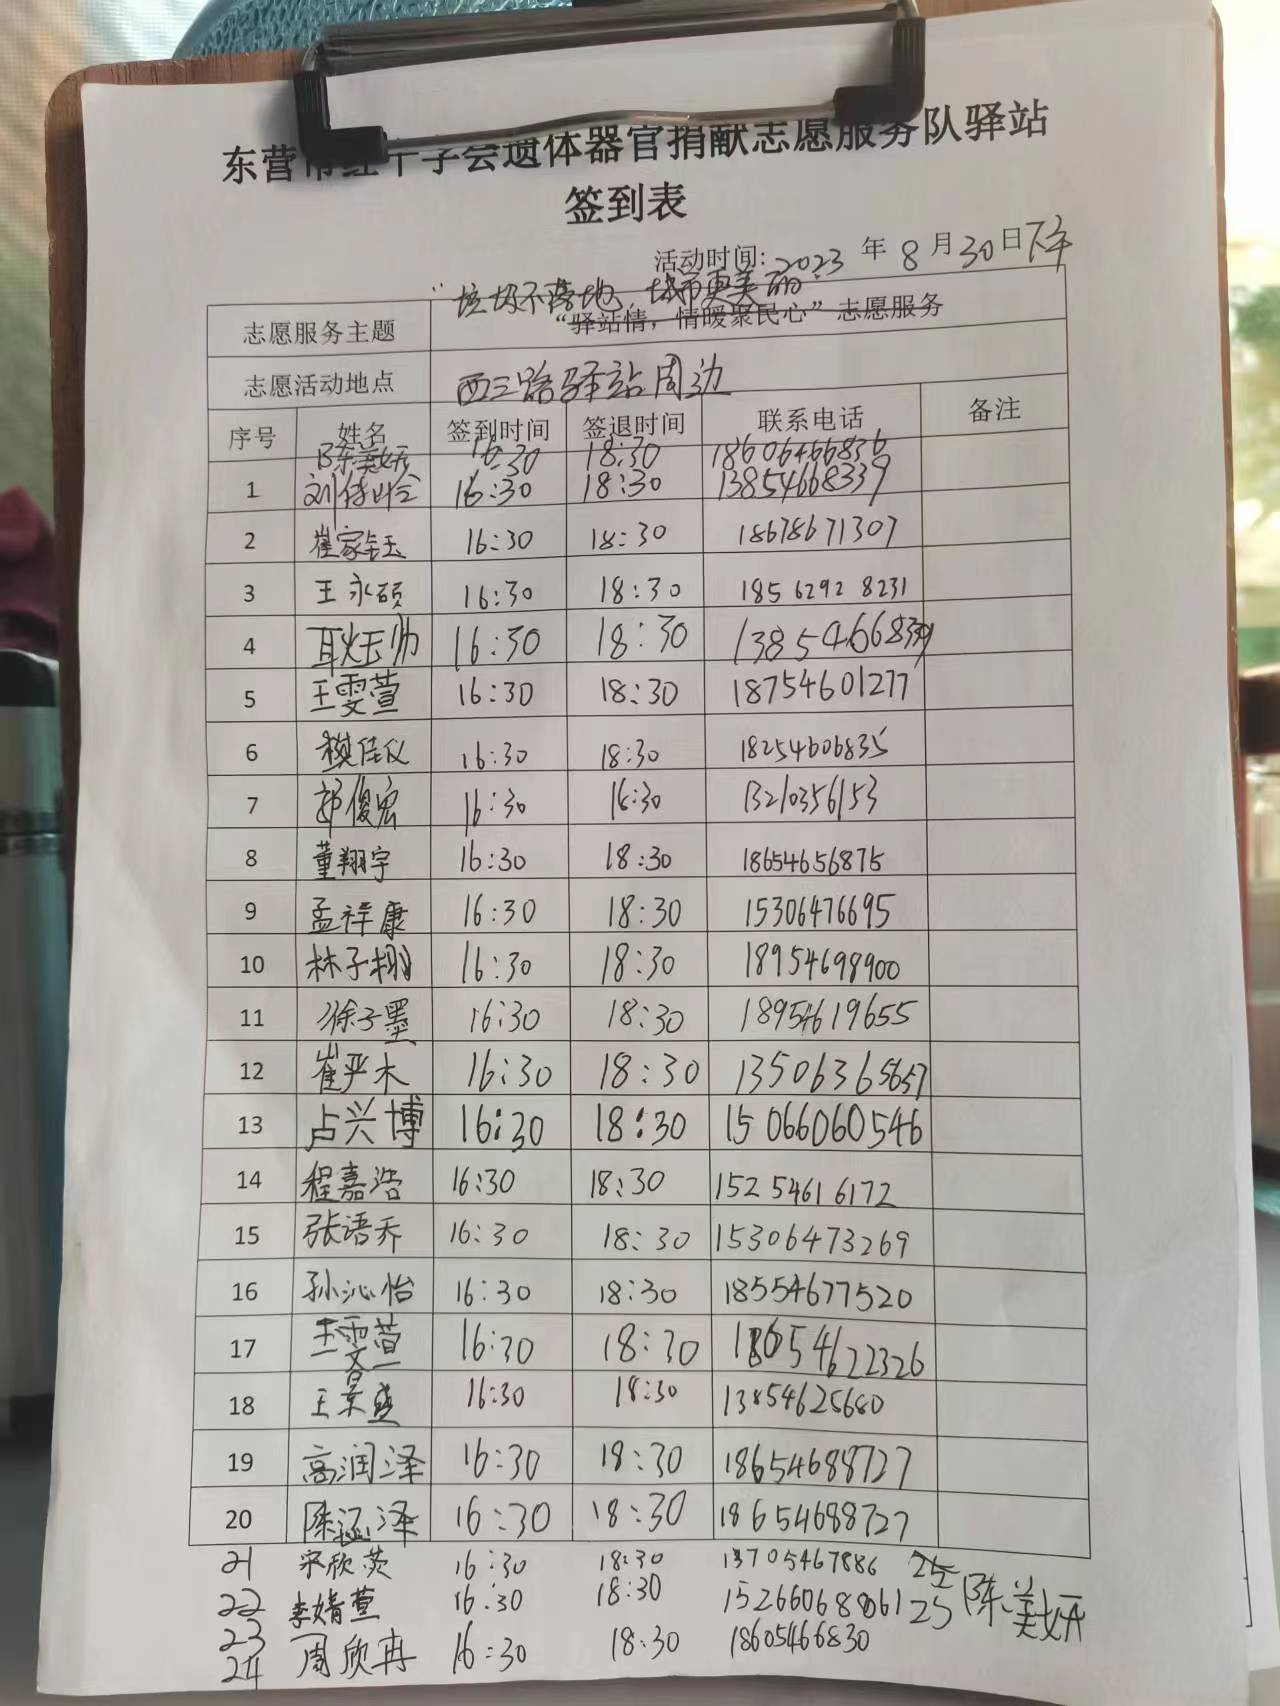 东营市红十字会遗体器官捐献志愿服务队驿站
签到表
活动时间: 2023 年 8 月 30 日 下午
"垃圾不落地,城市更美丽
志愿服务主题 “驿站情，情暖聚民心”志愿服务
志愿活动地点 西三路驿站周边
序号 姓名 签到时间 签退时间 联系电话 备注
陈美妍 16:30 18:30 18606466836
1 刘 16:30 18:30 13854668339
2 崔家钰 16:30 18:30 18678671307
3 王永硕 16:30 18:30 18562928231
4 耿玉帅 16:30 18:30
5 王雯萱 16:30 18:30 18754601277
6 樊佳仪 16:30 18:30 18254606835
7 郭俊宏 16:30 16:30 13210356153
8 董翔宇 16:30 18:30 18654656875
9 孟祥康 16:30 18:30 15306476695
10 林子栩 16:30 18:30 18954698900
11 徐子墨 16:30 18:30 18954619655
12 崔严木 16:30 18:30 13506365657
13 占兴博 16:30 18:30 15066060546
14 程嘉浩 16:30 18:30 15254616172
15 张语乔 16:30 18:30 15306473269
16 孙沁怡 16:30 18:30 18554677520
17 王雯萱 16:30 18:30 18654622326
18 王景盛 16:30 18:30 13854625680
19 高润泽 16:30 18:30 18654688727
20 陈涵泽 16:30 18:30 18654688727
21 宋欣荧 16:30 18:30 13705467886 25
22 李婧萱 16:30 18:30 15266068061 25 陈美妍
23 周欣冉 16:30 18:30 18605466830
24